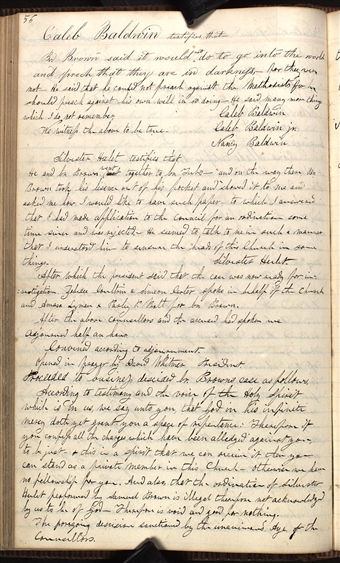 56
Caleb Baldwin testifies that
Br. Brown said it would not do to go into the world
and preach that they are in darkness for they were
not. He said that he could not preach against the Methodists for he
should preach against his own will in so doing. He said many more things
which I do not remember. Caleb Baldwin
We witness the above to be true. Caleb Baldwin jr.
Nancy Baldwin
Silvester Hulet testifies that
He and br Brown went together to br and on the way there Mr
Brown took his licence out of his pocket and showed it to me and
asked me how I would like to have such paper to which I answered
that I had made application to the Council for an ordination some
time since and was rejected. He seemed to talk to me in such a manner
that I understood him to censure the heads of this Church in some
things. Silvester Hulet
After which the president said that the case was now ready for in=
vestigation. Zebedee Coultrin & Simeon Carter spoke in behalf of the Church
and Amasa Lyman & Parley P. Pratt for br Brown.
After the above counsellors and the accused had spoken we
adjourned half an hour
Convened according to adjournment.
Opened in prayer by David Whitmer President.
Proceeded to business decided br Browns case as follows
According to testimony and the voice of the Holy Spirit
which is in us we say unto you that God in his infinite
mercy doth yet grant you a space of repentance: Therefore if
you confess all the charges which have been alledged against you
to be just & this in a spirit that we can receive it then you
can stand as a private member in this Church otherwise we have
no fellowship for you. And also that the ordination of Silvester
Hulet pronounced by Samuel Brown is illegal therefore not acknowledged
by us to be of God Therefore is void and good for nothing.
The foregoing decision sanctioned by the unanimous Aye of the
Councillors.